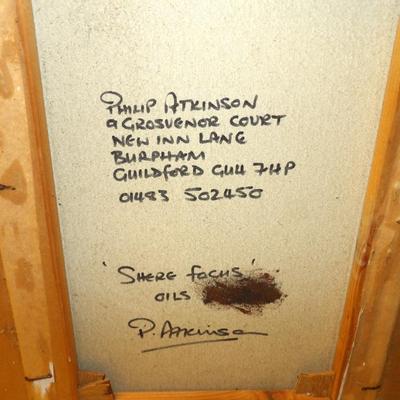 PHILIP ATKINSON
9 GROSVENOR COURT
NEW INN LANE
BURPHAM
GUILDFORD GU4 7HP
01483 502450
'SHERE FOCUS'
OILS
P. Atkinson